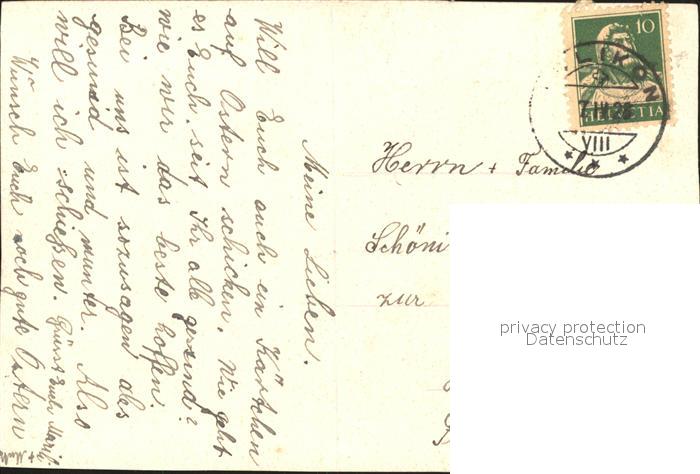 Meine Lieben.
Will Euch auch ein Kärtchen
auf Ostern schicken. Wie geht
es Euch, seit Ihr alle gesund?
wie wir das beste hoffen.
Bei uns ist sozusagen alles
gesund und munter. Also
will ich schießen. Grüsst Euch Marie.
Wünsch Euch noch gute Ostern
HELVETIA
10
LIKON
VIII
Herrn + Familie
Schöni
zur
privacy protection
Datenschutz